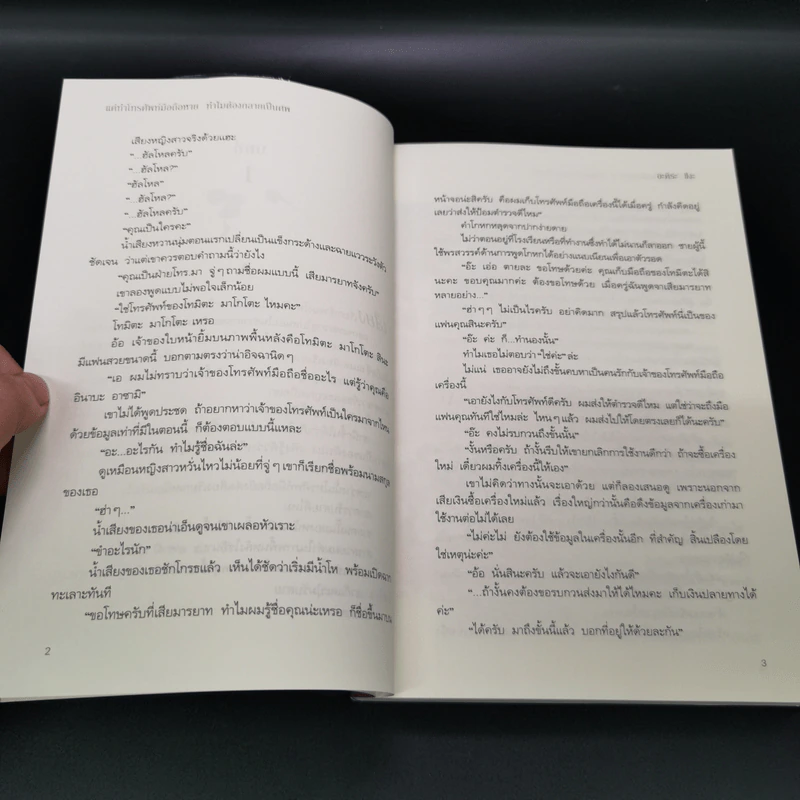 แค่ทำโทรศัพท์มือถือหาย ทำไมต้องกลายเป็นศพ
เสียงหญิงสาวจริงด้วยแฮะ
“...ฮัลโหลครับ”
“...ฮัลโหล?”
“ฮัลโหล”
“...ฮัลโหล?”
“...ฮัลโหลครับ”
“คุณเป็นใครคะ”
น้ำเสียงหวานนุ่มตอนแรกเปลี่ยนเป็นแข็งกระด้างและฉายแววระวังตัว
ชัดเจน ว่าแต่เขาควรตอบคำถามนี้ว่ายังไง
“คุณเป็นฝ่ายโทร.มา จู่ๆ ถามชื่อผมแบบนี้ เสียมารยาทจังครับ”
เขาลองพูดแบบไม่พอใจเล็กน้อย
“ใช่โทรศัพท์ของโทมิตะ มาโกโตะ ไหมคะ”
โทมิตะ มาโกโตะ เหรอ
อ้อ เจ้าของใบหน้ายิ้มบนภาพพื้นหลังคือโทมิตะ มาโกโตะ สินะ
มีแฟนสวยขนาดนี้ บอกตามตรงว่าน่าอิจฉานิดๆ
“เอ ผมไม่ทราบว่าเจ้าของโทรศัพท์มือถือชื่ออะไร แต่รู้ว่าคุณคือ
อินาบะ อาซามิ”
เขาไม่ได้พูดประชด ถ้าอยากหาว่าเจ้าของโทรศัพท์เป็นใครมาจากไหน
ด้วยข้อมูลเท่าที่มีในตอนนี้ ก็ต้องตอบแบบนี้แหละ
“อะ...อะไรกัน ทำไมรู้ชื่อฉันล่ะ”
ดูเหมือนหญิงสาวหวั่นไหวไม่น้อยที่จู่ๆ เขาก็เรียกชื่อพร้อมนามสกุล
ของเธอ
“ฮ่าๆ...”
น้ำเสียงของเธอน่าเอ็นดูจนเขาเผลอหัวเราะ
“ขำอะไรนัก”
น้ำเสียงของเธอชักโกรธแล้ว เห็นได้ชัดว่าเริ่มมีน้ำโห พร้อมเปิดฉาก
ทะเลาะทันที
“ขอโทษครับที่เสียมารยาท ทำไมผมรู้ชื่อคุณน่ะเหรอ ก็ชื่อขึ้นมาบน
2
หน้าจอน่ะสิครับ คือผมเก็บโทรศัพท์มือถือเครื่องนี้ได้เมื่อครู่ กำลังคิดอยู่
เลยว่าส่งให้ป้อมตำรวจดีไหม”
คำโกหกหลุดจากปากง่ายดาย
ไม่ว่าตอนอยู่ที่โรงเรียนหรือที่ทำงานซึ่งทำได้ไม่นานก็ลาออก ชายผู้นี้
ใช้พรสวรรค์ด้านการพูดโกหกได้อย่างแนบเนียนเพื่อเอาตัวรอด
“อ๊ะ เอ่อ ตายละ ขอโทษด้วยค่ะ คุณเก็บมือถือของโทมิตะได้สิ
นะคะ ขอบคุณมากค่ะ ต้องขอโทษด้วย เมื่อครู่ฉันพูดจาเสียมารยาท
หลายอย่าง...”
“ฮ่าๆๆ ไม่เป็นไรครับ อย่าคิดมาก สรุปแล้วโทรศัพท์นี่เป็นของ
แฟนคุณสินะครับ”
“อ๊ะ ค่ะ ก็...ทำนองนั้น”
ทำไมเธอไม่ตอบว่า “ใช่ค่ะ” ล่ะ
ไม่แน่ เธออาจยังไม่ถึงขั้นคบหาเป็นคนรักกับเจ้าของโทรศัพท์มือถือ
เครื่องนี้
“เอายังไงกับโทรศัพท์ดีครับ ผมส่งให้ตำรวจดีไหม แต่ใช่ว่าจะถึงมือ
แฟนคุณทันทีใช่ไหมล่ะ ไหนๆ แล้ว ผมส่งไปให้โดยตรงเลยก็ได้นะครับ”
“อ๊ะ คงไม่รบกวนถึงขั้นนั้น”
“งั้นหรือครับ ถ้างั้นรีบให้เขายกเลิกการใช้งานดีกว่า ถ้าจะซื้อเครื่อง
ใหม่ เดี๋ยวผมทิ้งเครื่องนี้ให้เอง”
เขาไม่คิดว่าทางนั้นจะเอาด้วย แต่ก็ลองเสนอดู เพราะนอกจาก
เสียเงินซื้อเครื่องใหม่แล้ว เรื่องใหญ่กว่านั้นคือดึงข้อมูลจากเครื่องเก่ามา
ใช้งานต่อไม่ได้เลย
“ไม่ค่ะไม่ ยังต้องใช้ข้อมูลในเครื่องนั้นอีก ที่สำคัญ สิ้นเปลืองโดย
ใช่เหตุน่ะค่ะ”
“อ้อ นั่นสินะครับ แล้วจะเอายังไงกันดี”
“...ถ้างั้นคงต้องขอรบกวนส่งมาให้ได้ไหมคะ เก็บเงินปลายทางได้
ค่ะ”
“ได้ครับ มาถึงขั้นนี้แล้ว บอกที่อยู่ให้ด้วยละกัน”
3